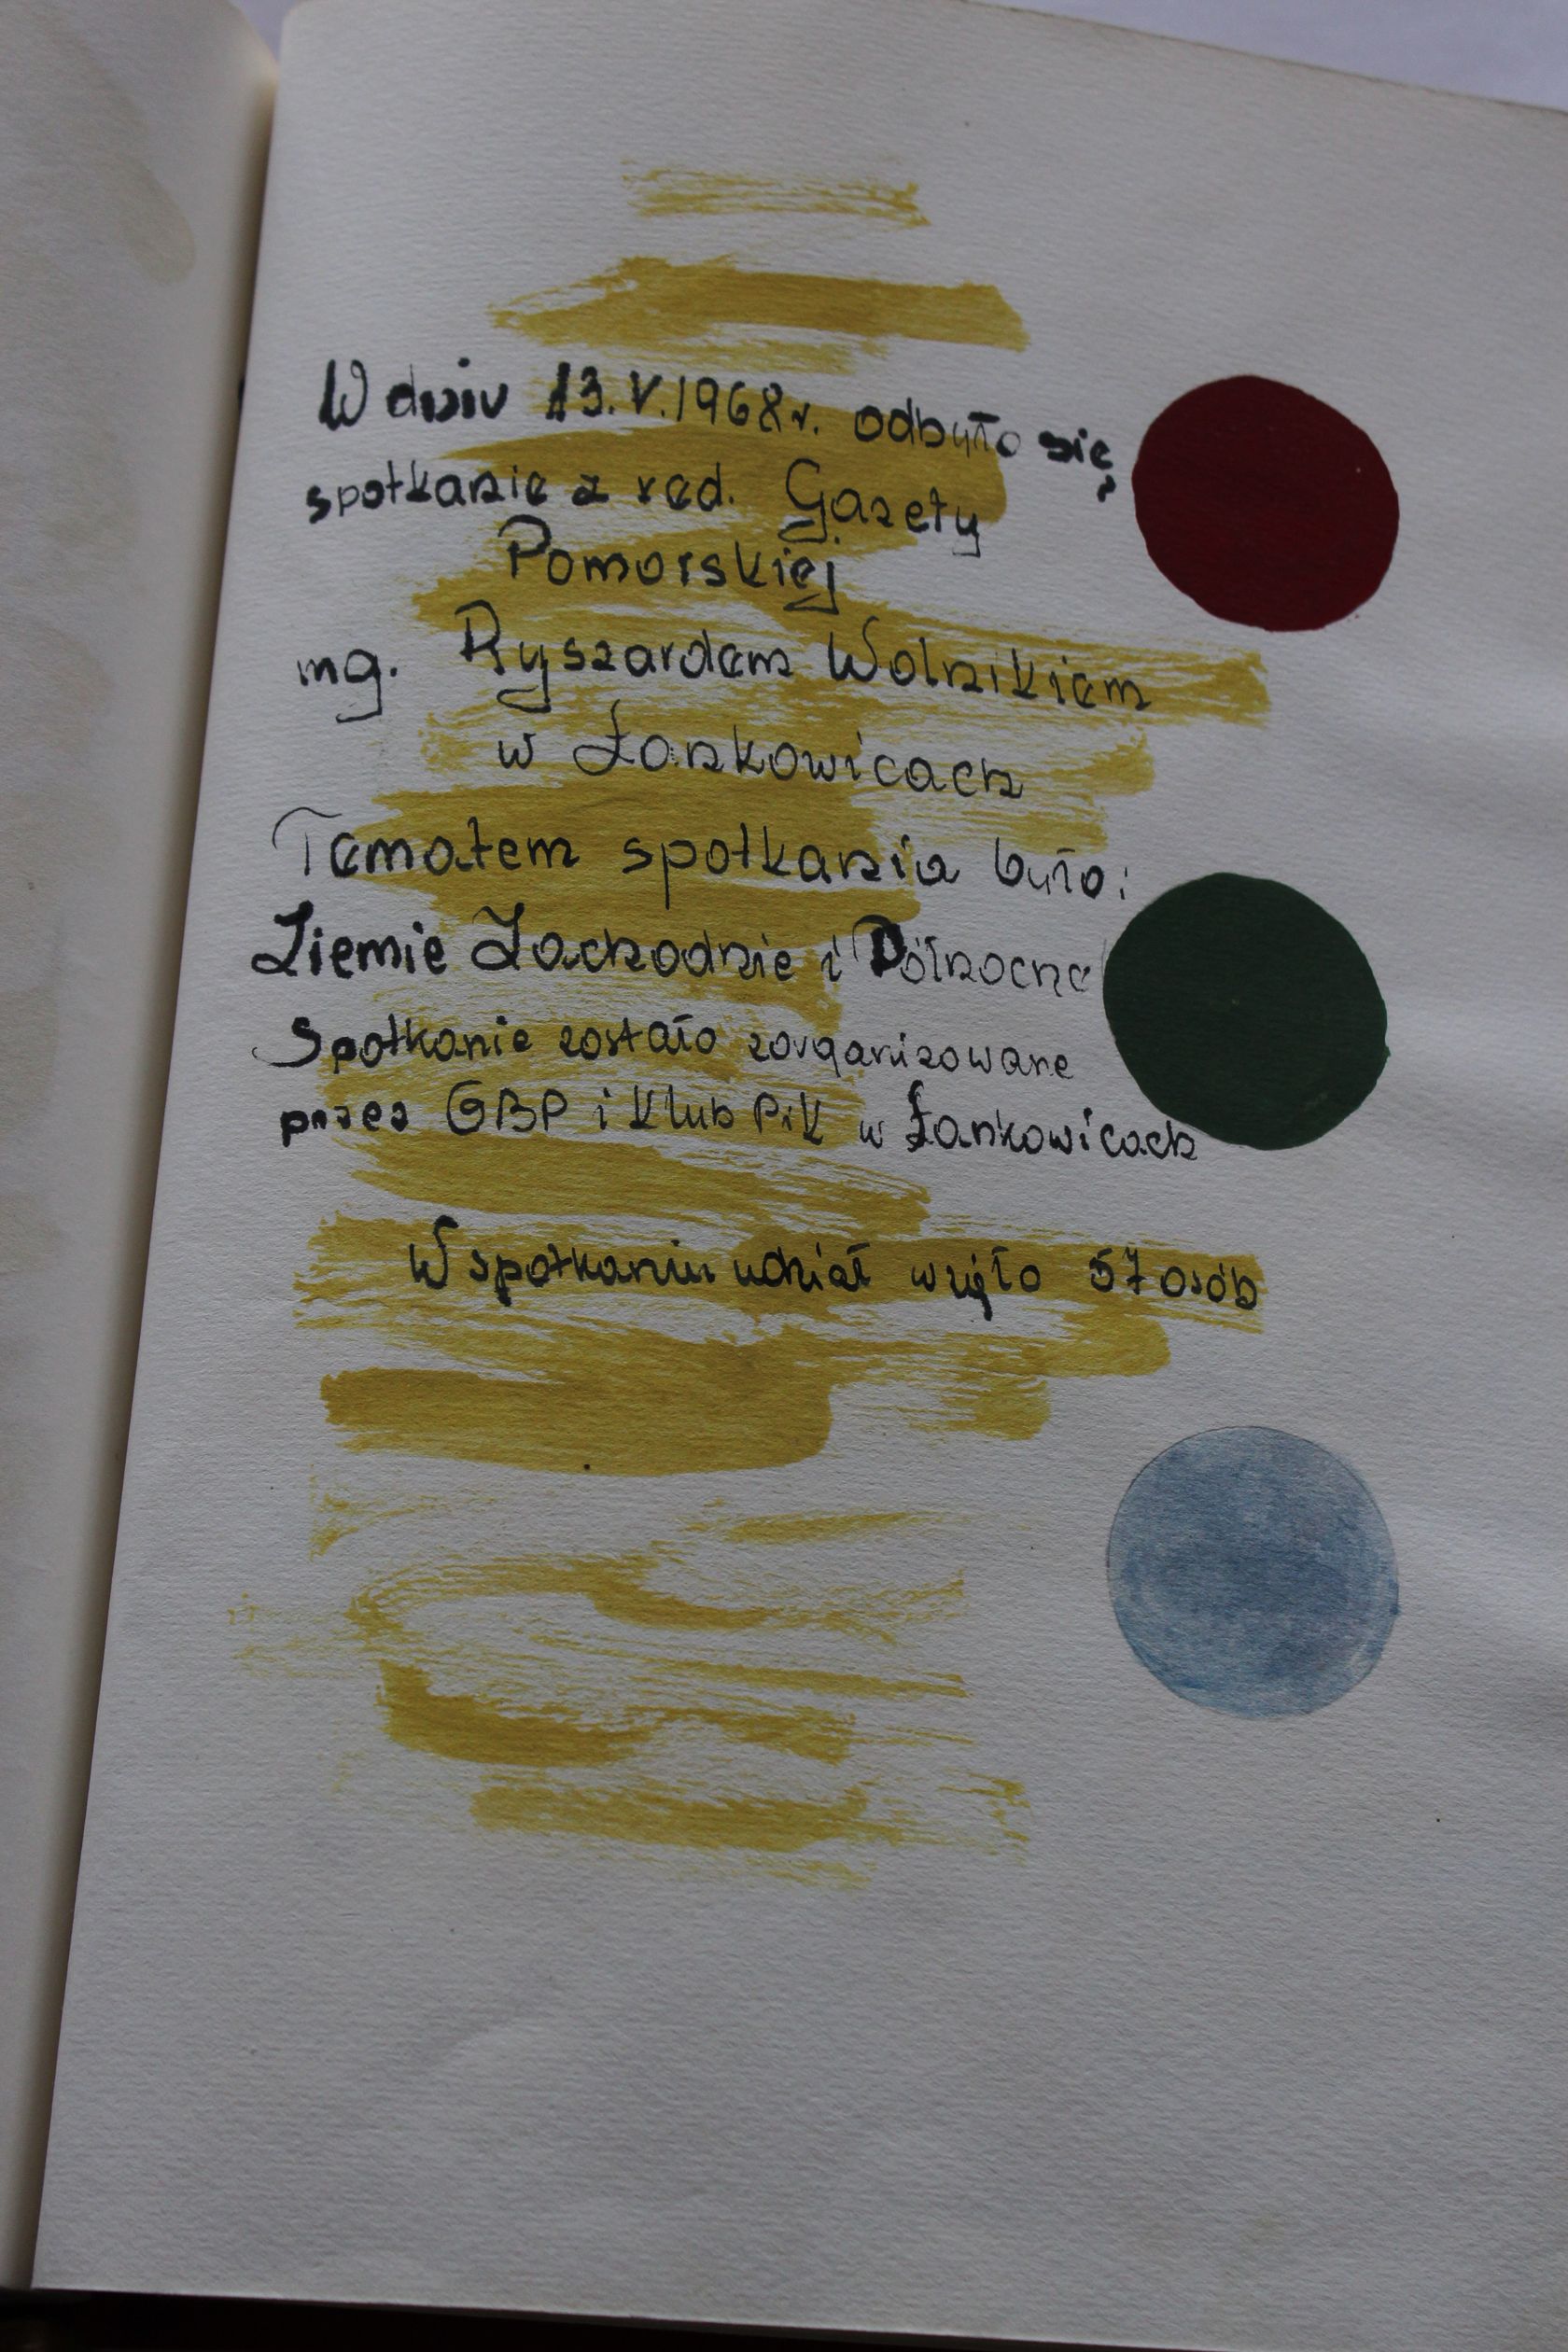 W dniu 13.V.1968r. odbyło się
spotkanie z red. Gazety
Pomorskiej
mg. Ryszardem Wolnikiem
w Łankowicach
Tematem spotkania było:
Ziemie Zachodnie i Północne
Spotkanie zostało zorganizowane
przez GBP i Klub PiK w Łankowicach
W spotkaniu udział wzięło 57 osób